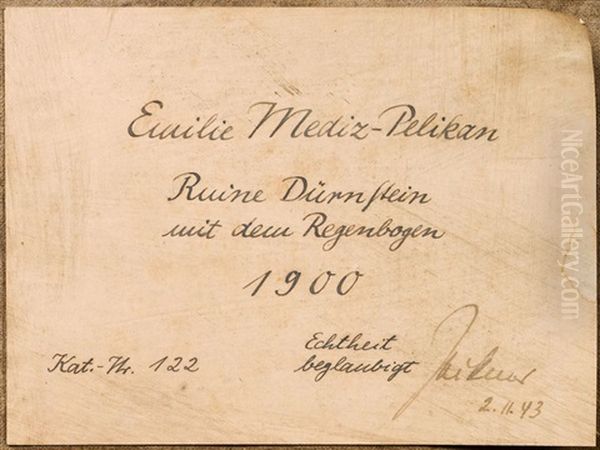 Emilie Mediz-Pelikan
Ruine Dürnstein
mit dem Regenbogen
1900
Kat.-Nr. 122
Echtheit
beglaubigt
2.11.43
NiceArtGallery.com